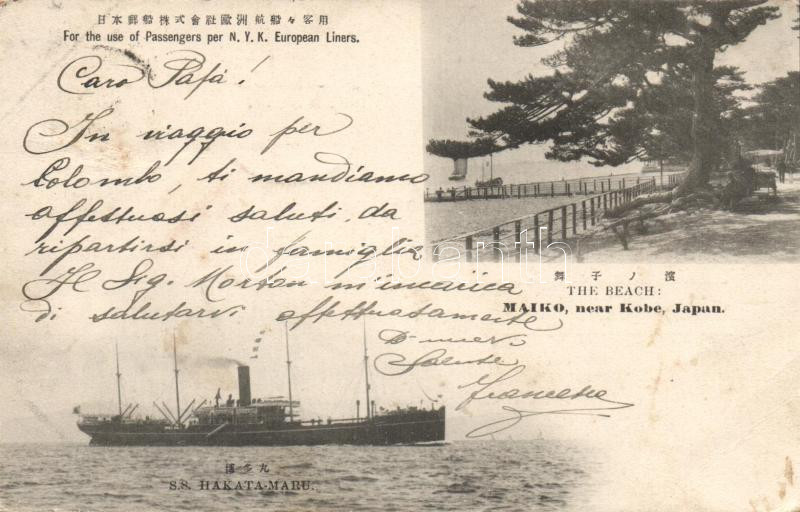 日本郵船株式會社歐洲航船々客用
For the use of Passengers per N. Y. K. European Liners.
Caro Papà!
In viaggio per
Colombo, ti mandiamo
affettuosi saluti, da
ripartirsi in famiglia
Il Sig. Morton m'incarica
di salutarvi affettuosamente
Francesca
舞子ノ濱
THE BEACH:
MAIKO, near Kobe, Japan.
博多丸
S.S. HAKATA-MARU.
darabanth